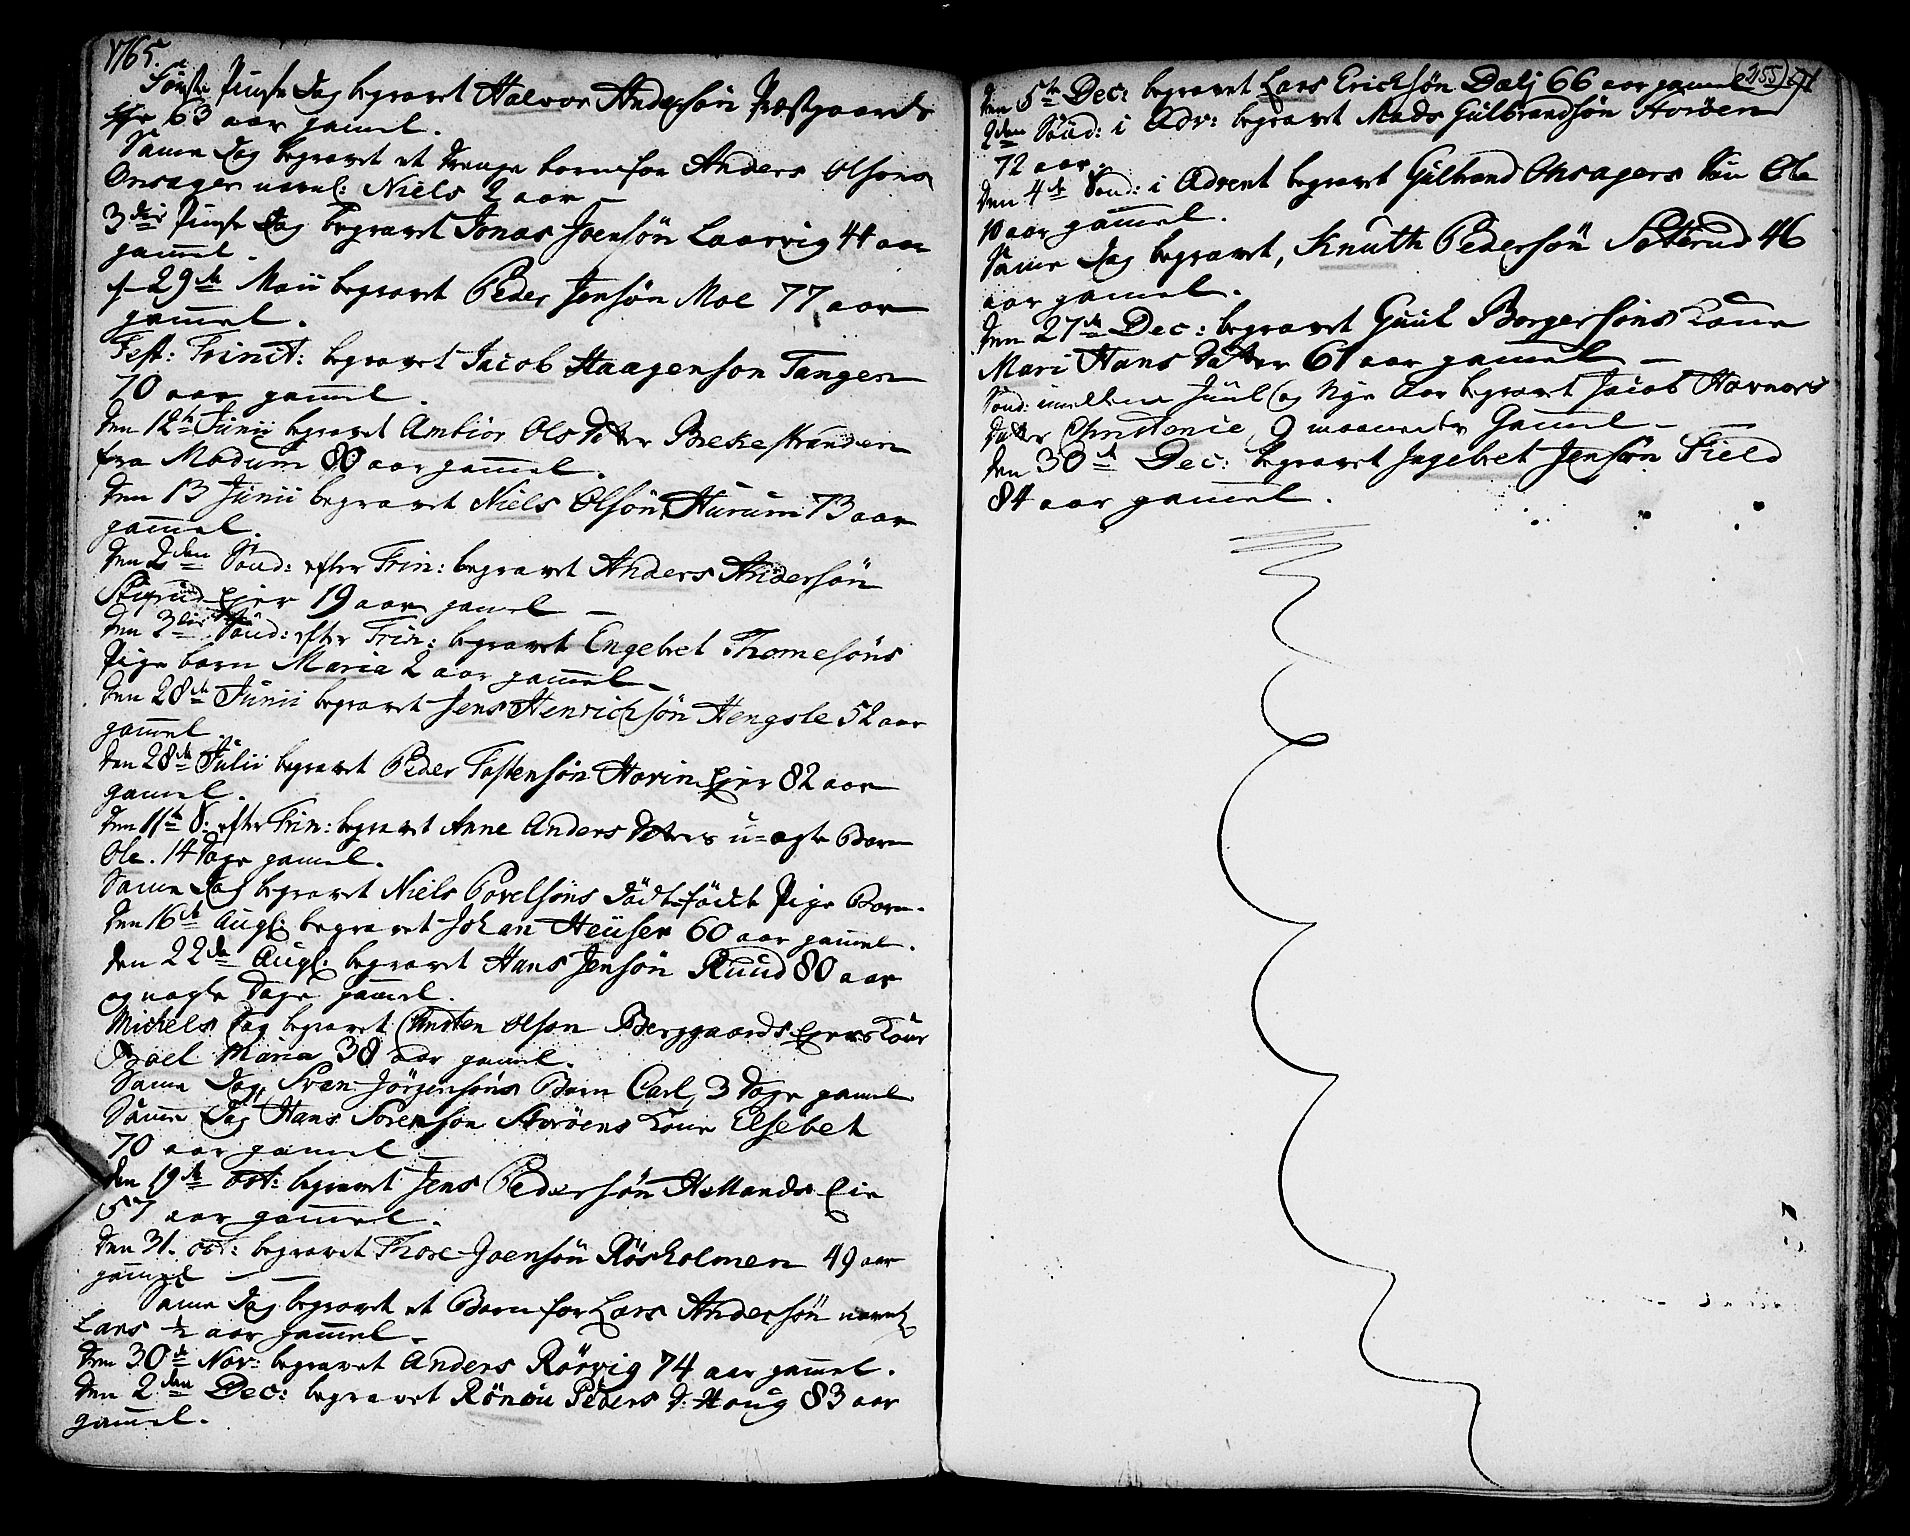 1765.
Første Pintse Dag begravet Halvor Andersøn Præstgaards
Eje 63 aar gamel.
Samme Dag begravet et Drenge barn for Anders Olsøns
Onsager navnl: Niels 2 aar –
3die Pintse Dag begravet Jonas Joensøn Laarvig 44 aar
gamel.
d 29de Maii begravet Peder Jensøn Moe 77 aar
gamel.
Fest: Trinit: begravet Jacob Haagensøn Tangen
70 aar gamel.
Den 12te Junii begravet Ambior Olsdatter Brekestranden
fra Modum 80 aar gamel.
Den 13 Junii begravet Niels Olsøn Hurum 73 aar
gamel.
Den 2den Sønd: efter Trin: begravet Anders Andersøn
Eier 19 aar gamel –
Den 3die Sønd: efter Trin: begravet Engebret Thomesøns
Pige barn Maria 2 aar gamel –
Den 28de Junii begravet Jens Henrichsøn Hengsle 52 aar
gamel.
Den 28de Julii begravet Peder Tostensøn Horin Ejer 82 aar
gamel.
Den 11te S: efter Trin: begravet Anne Anders Datters u-ægte Barn
Ole. 14 Dage gamel.
Samme Dag begravet Niels Povelsøns dødtfødt Pige Barn.
Den 16de Augl: begravet Johan Heuser 60 aar gamel.
Den 22de Augl: begravet Hans Jensøn Ruud 80 aar
og nogle Dage gamel.
Mickels Dag begravet Christen Olsøn Berggaards Ejers Kone
Boel Maria 38 aar gamel.
Samme Dag Sven Jørgensøns Barn Carl, 3 Dage gamel
Samme Dag Hans Sørensøn Storøens Kone Elsebet
70 aar gamel –
Den 19de oct: begravet Jens Pedersøn Hollands Eie
57 aar gamel.
Den 31. oct: begravet Thore Joensøn Røsholmen 49 aar
gamel –
Samme Dag begravet et Barn for Lars Andersøn navnl:
Lars ½ aar gamel.
Den 30de Nov: begravet Anders Rørvig 74 aar gamel.
Den 2den Dec: begravet Rønou Peders d: Houg 83 aar
gamel.
255
Den 5te Dec: begravet Lars Ericksøn Dalj 66 aar gamel
2den Sønd: i Adv: begravet Mads Gulbrandsøn Storøen
72 aar.
Den 4de Sønd: i Advent begravet Gulbrand Onsagers Søn Ole
10 aar gamel.
Samme Dag begravet, Knuth Pedersøn Sætterud 46
aar gamel.
Den 27de Dec: begravet Guul Borgersøns Kone
Mari Hans datter 61 aar gamel –
Sønd: imellem Juul og Nye Aar begravet Jacob Hovners
datter Christence, 9 maaneder Gamel –
Den 30de Dec: begravet Ingebret Jensøn Field
84 aar gamel.